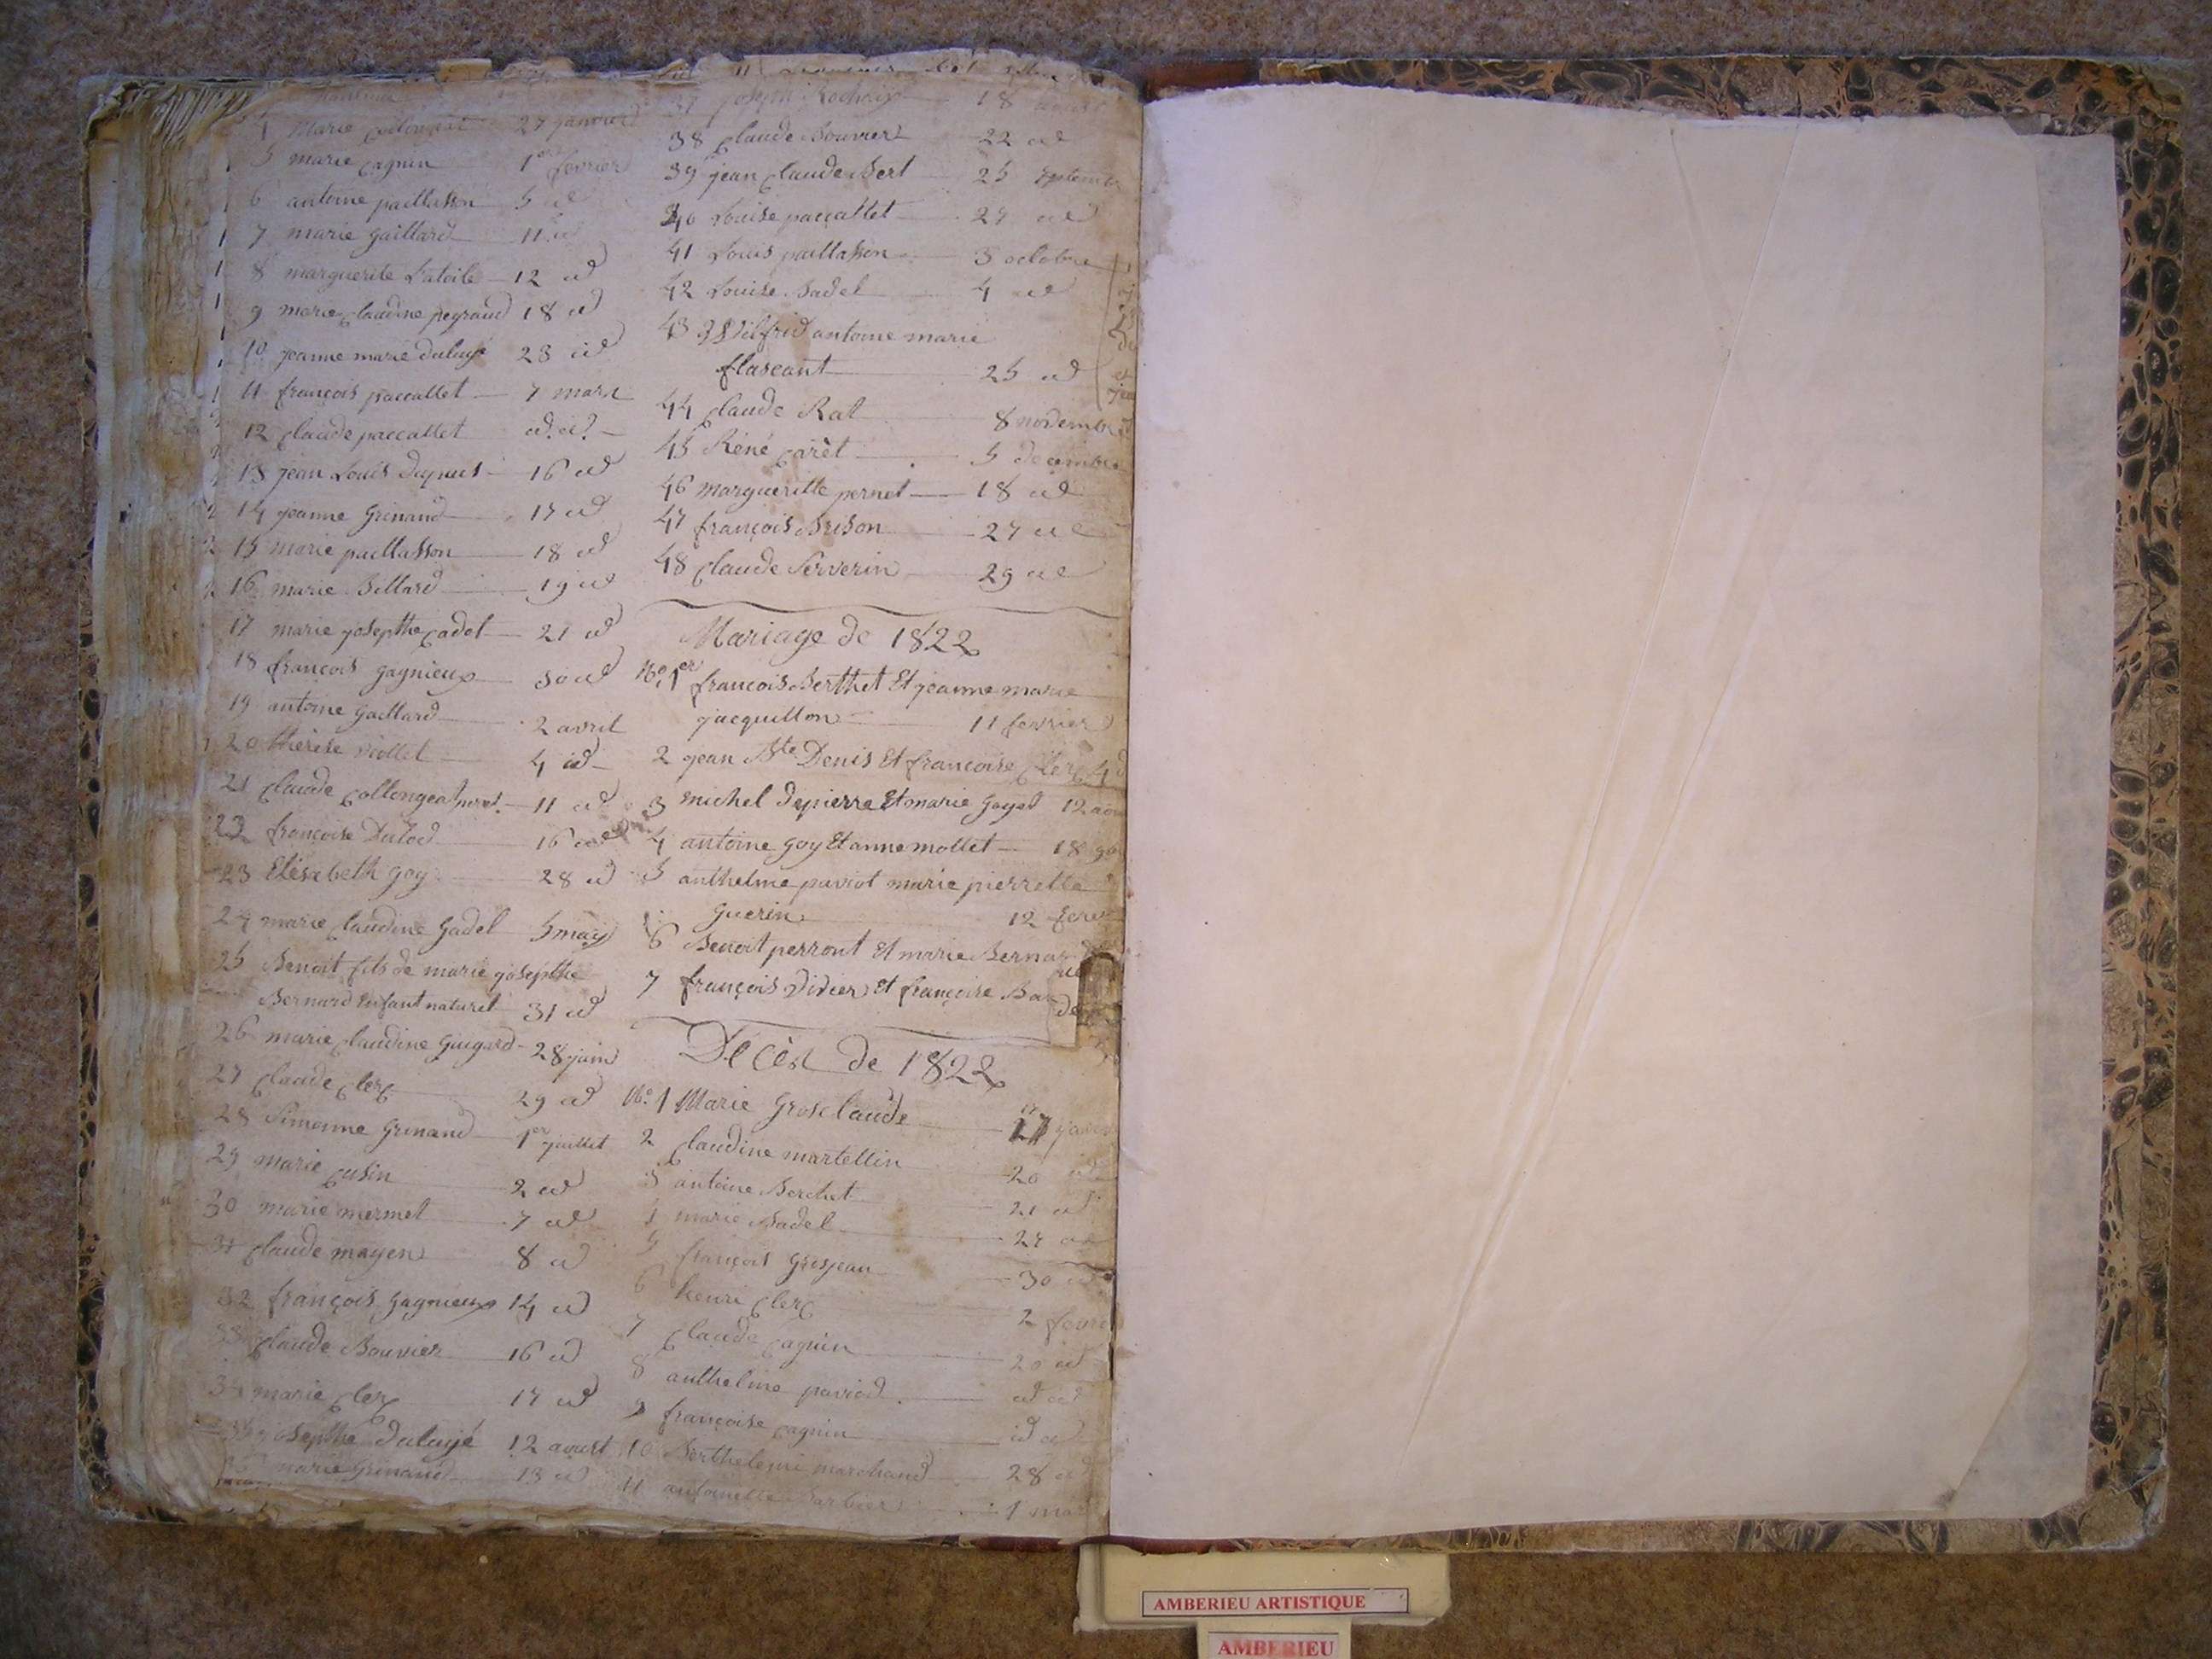 Marie 27 janvier
5 marie Cagnin 1er fevrier
6 antoine paillasson 5 id
7 marie Gaillard 11 id
8 marguerite L'atoile 12 id
9 marie Claudine peyraud 18 id
10 jeanne marie 23 id
11 françois paccallet 7 mars
12 Claude paccallet id. id.
13 jean Louis Dupuis 16 id
14 jeanne Grinand 17 id
15 marie paillasson 18 id
16 marie Billard 19 id
17 marie josepthe Cadel 21 id
18 françois gagnieux 30 id
19 antoine Gaillard 2 avril
20 therese viollet 4 id
21 Claude 11 id
22 françoise 16 id
23 Elisabeth Goy 28 id
24 marie Claudine Gadel 5 may
25 Benoit fils de marie josepthe
Bernard Enfant naturel 31 id
26 marie Claudine Guigard 28 juin
27 Claude Clerc 29 id
28 Simonne Grinand 1er juillet
29 marie Cusin 2 id
30 marie mermet 7 id
31 Claude mayen 8 id
32 françois gagnieux 14 id
33 Claude Bouvier 16 id
34 marie Clerc 17 id
35 josepthe 12 aoust
marie Grinand 13 id
37 joseph Rochaix 18
38 Claude Bouvier 22 id
39 jean Claude Bert 25 septembre
40 Louise paccallet 27 id
41 Louis paillasson 3 octobre
42 Louise Badel 4 id
43 Wilfrid antoine marie
flaseant 25 id
44 Claude Rat 8 novembre
45 Réné Carèt 5 decembre
46 margueritte pernet 18 id
47 françois Brison 27 id
48 Claude Serverin 29 id
Mariage de 1822
No. 1er françois Berthet Et jeanne marie
jacquillon 11 fevrier
2 jean Bte Denis Et françoise Clerc
3 michel Depierre Et marie Goyet 12
4 antoine Goy Et anne mollet 18
5 anthelme paviot marie pierrette
Guerin 12
6 Benoit perront Et marie
7 françois Didier Et françoise
Décès de 1822
No. 1 Marie Grosclaude 17
2 Claudine martellin 20 id
3 antoine Berchet 21 id
4 marie Badel 27 id
5 françois Grosjean 30 id
6 henri Clerc 2
7 Claude Cagnin 20 id
8 anthelme paviod id id
9 françoise Cagnin id id
10 Berthelemi marchand 28 id
11 antoinette Barbier 1
AMBERIEU ARTISTIQUE
AMBERIEU